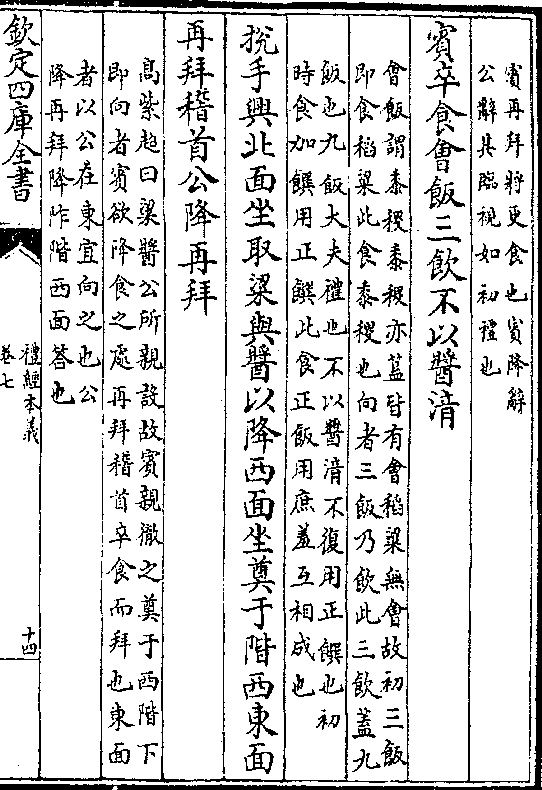 賓再拜將更食也賓降辭
公辭其臨視如初禮也
賓卒食會飯三飲不以醬湆
會飯謂黍稷黍稷亦簋皆有會稻粱無會故初三飯
即食稻粱此食黍稷也向者三飯乃飲此三飲蓋九
飯也九飯大夫禮也不以醬湆不復用正饌也初
時食加饌用正饌此食正飯用庶羞互相成也
挩手興北面坐取粱與醬以降西面坐奠于階西東面
再拜稽首公降再拜
高紫超曰粱醬公所親設故賓親徹之奠于西階下
即向者賓欲降食之處再拜稽首卒食而拜也東面
者以公在東宜向之也公
降再拜降阼階西面答也
欽定四庫全書
禮經本義
卷七
十四